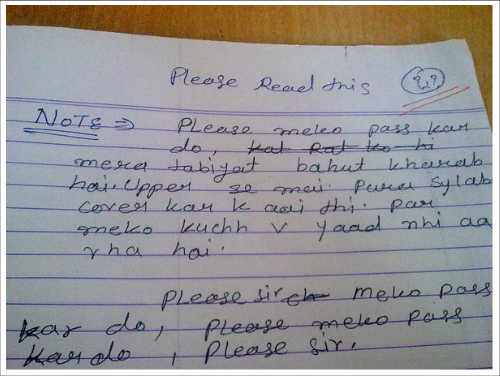 Please Read this
NOTE ⇒ Please meko pass kar
do, kal Rat ko hi
mera tabiyat bahut kharab
hai. Upper se mai pura sylab
cover kar k aai thi. par
meko kuchh v yaad nhi aa
rha hai.
Please sir meko pass
kar do, Please meko pass
kar do, Please sir.